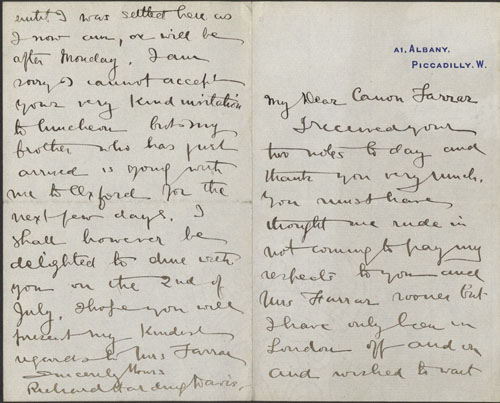 A1, ALBANY.
PICCADILLY. W.
My Dear Canon Farrar
I received your
two notes to day and
thank you very much.
You must have
thought me rude in
not coming to pay my
respects to you and
Mrs Farrar sooner but
I have only been in
London off and on
and wished to wait
until I was settled here as
I now am, or will be
after Monday. I am
sorry I cannot accept
your very kind invitation
to luncheon but my
brother who has just
arrived is going with
me to Oxford for the
next few days. I
shall however be
delighted to dine with
you on the 2nd of
July. I hope you will
present my kindest
regards to Mrs Farrar
Sincerely Yours
Richard Harding Davis.